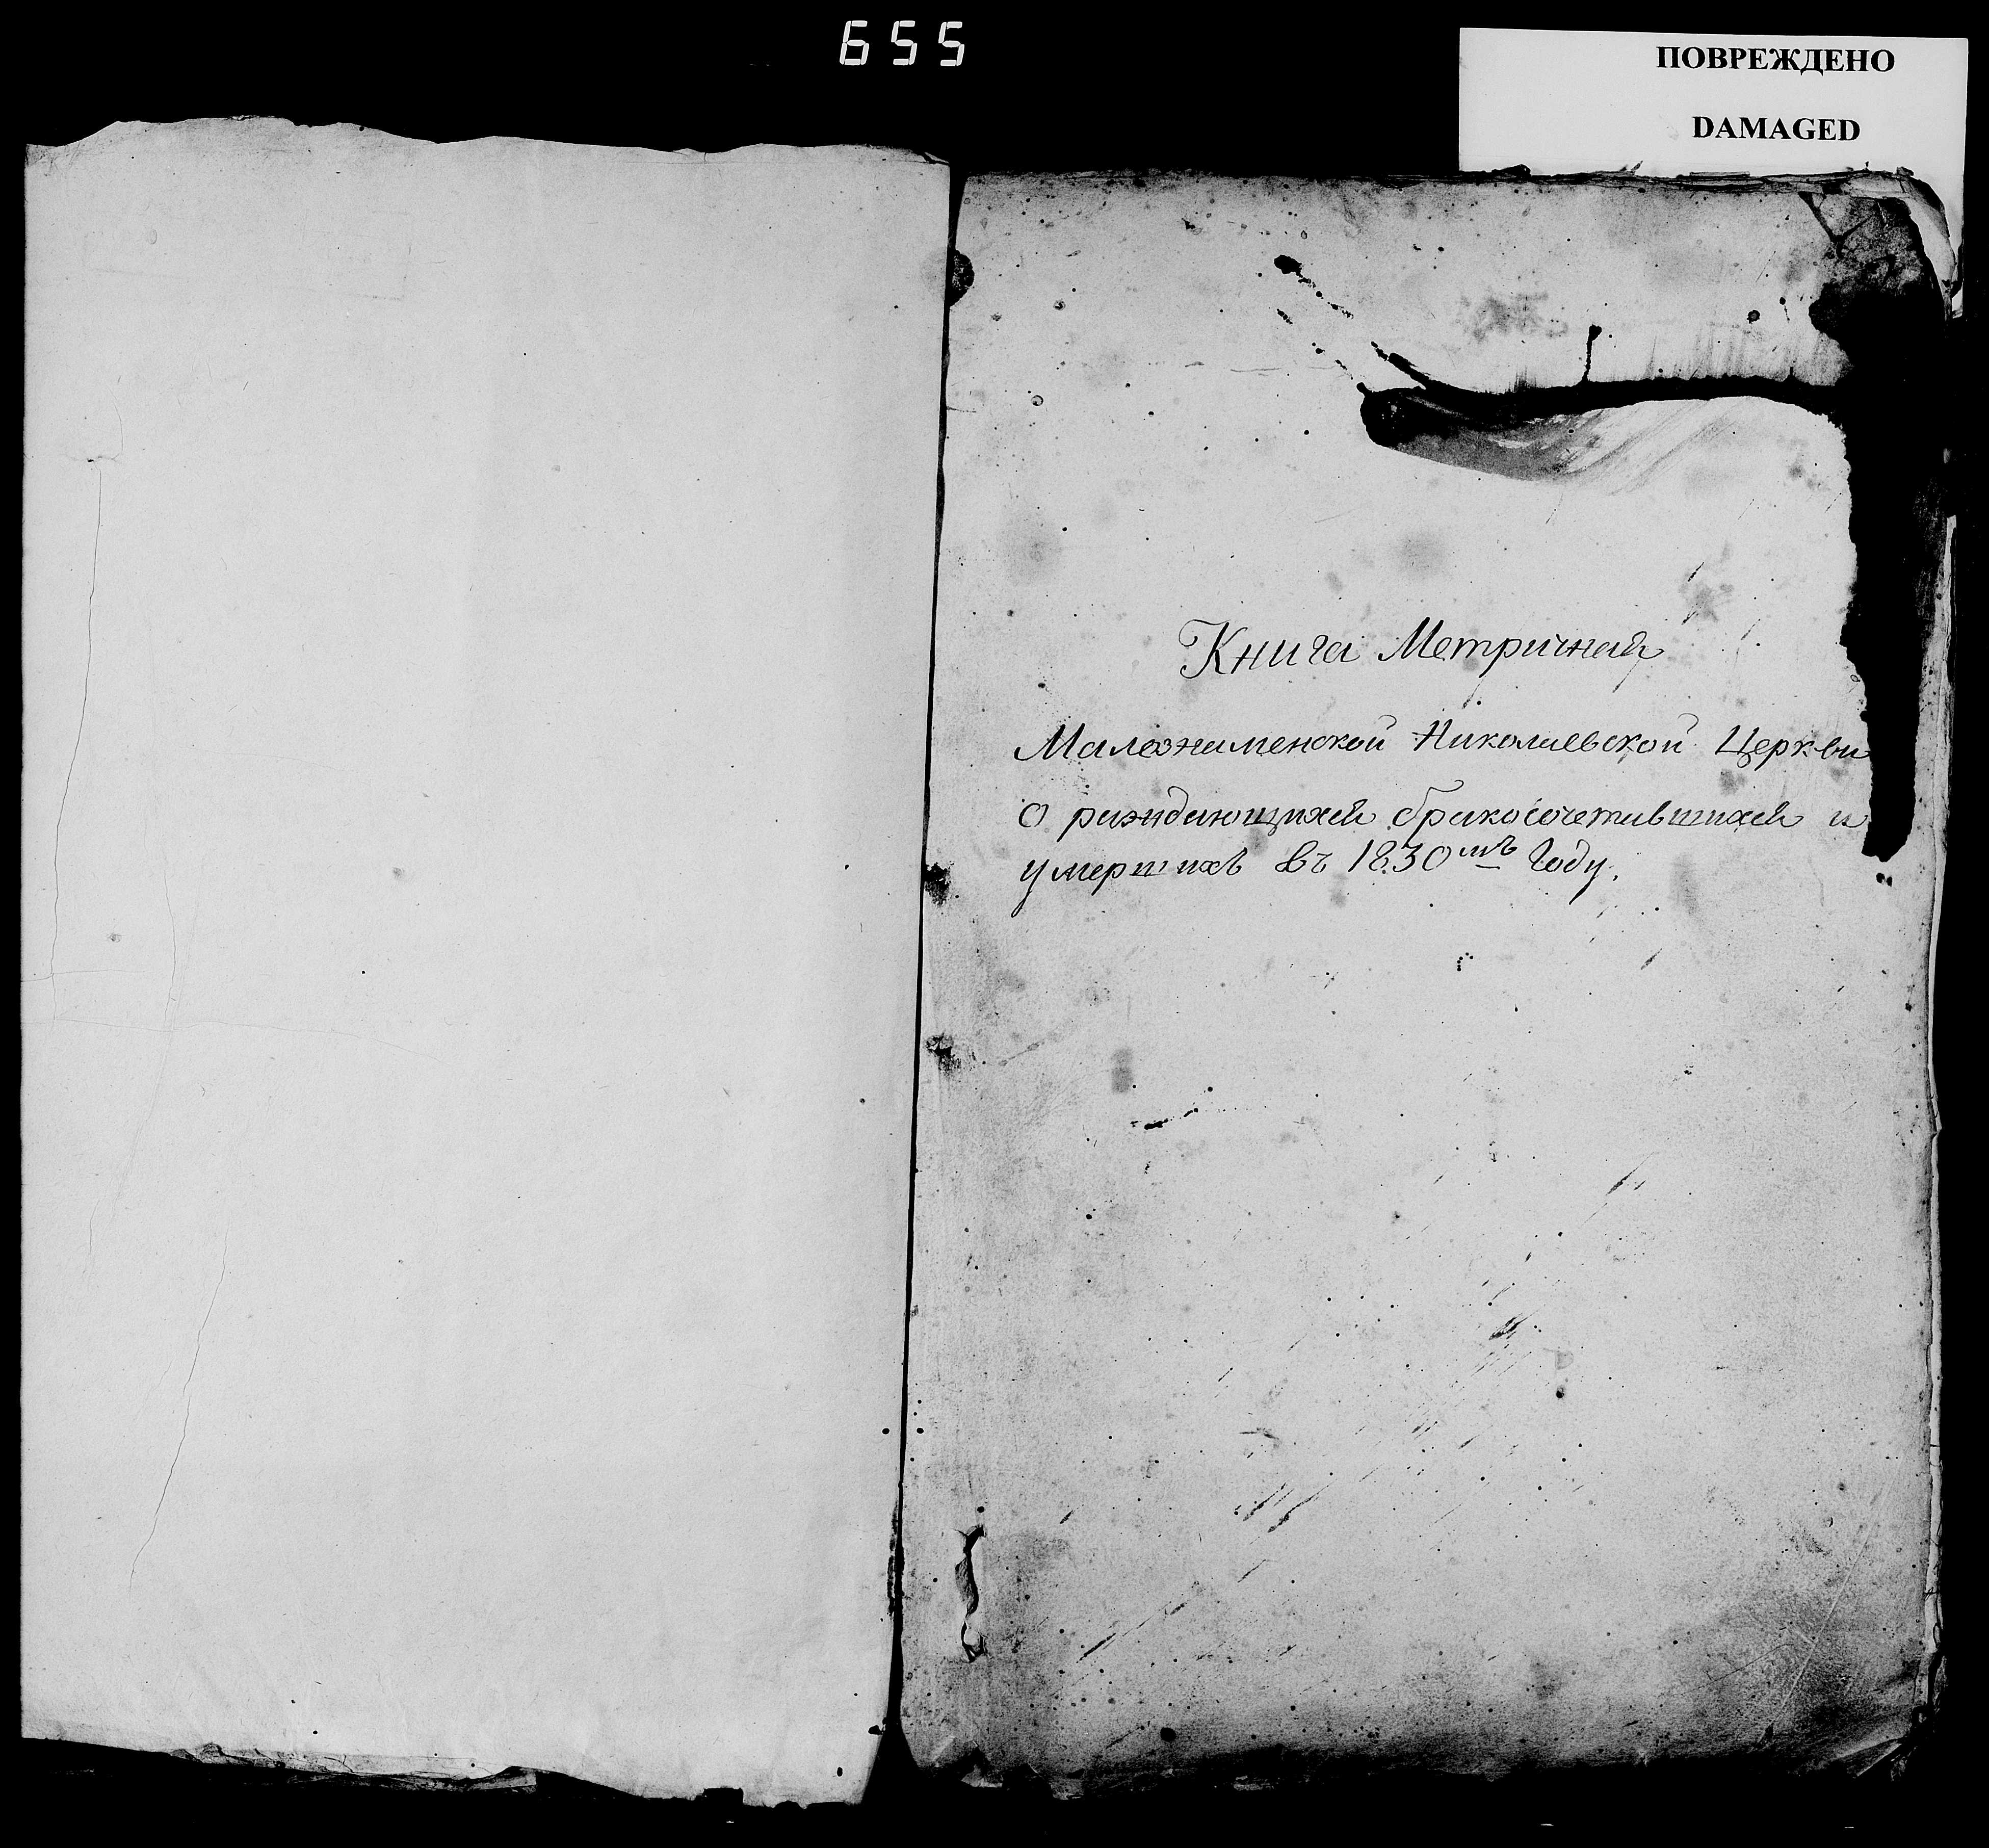 655
ПОВРЕЖДЕНО
DAMAGED
Книга Метричная
Малознаменской Николаевской Церкви
о раждающихся бракосочетавшихся и
умершихъ въ 1830мъ Году.